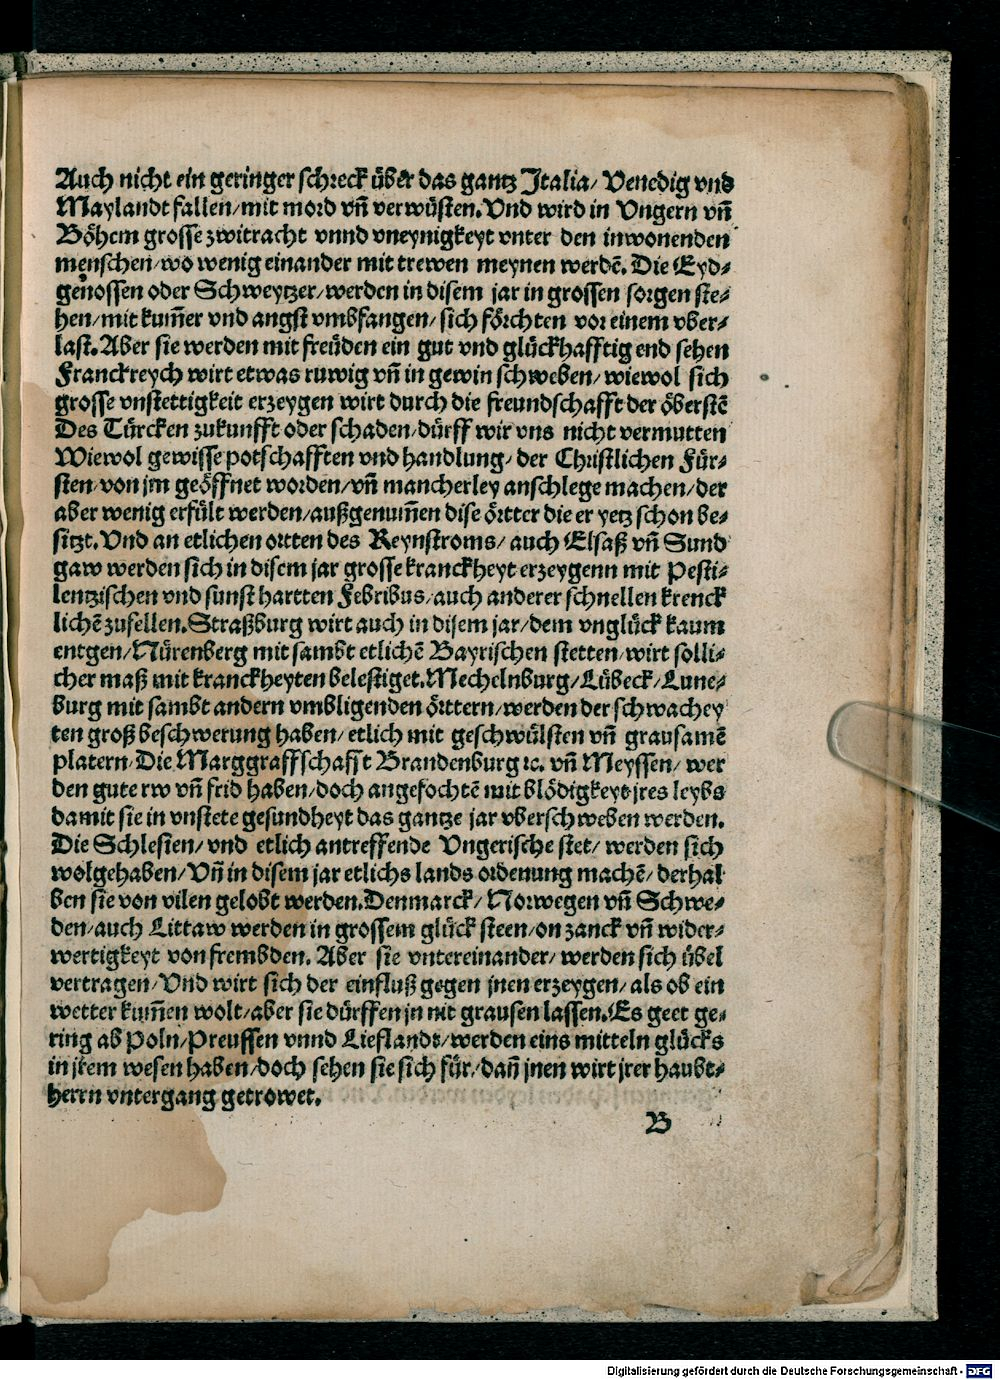 Auch nicht ein geringer schreck über das gantz Italia/ Venedig vnd
Maylandt fallen/mit mord vñ verwüsten. Vnd wird in Vngern vñ
Böhem grosse zwitracht vnnd vneynigkeyt vnter den inwonenden
menschen/wo wenig einander mit trewen meynen werdē. Die Eyd⸗
genossen oder Schweytzer/werden in disem jar in grossen sorgen ste⸗
hen/mit kum̄er vnd angst vmbfangen/ sich förchten vor einem vber⸗
last. Aber sie werden mit freüden ein gut vnd glückhafftig end sehen
Franckreych wirt etwas ruwig vñ in gewin schweben/ wiewol sich
grosse vnstettigkeit erzeygen wirt durch die freundschafft der öberstē
Des Türcken zukunfft oder schaden/dürff wir vns nicht vermutten
Wiewol gewisse potschafften vnd handlung/ der Christlichen Für⸗
sten/von jm geöffnet worden/vñ mancherley anschlege machen/der
aber wenig erfült werden/außgenum̄en dise örtter die er yetz schon be⸗
sitzt. Vnd an etlichen ortten des Reynstroms/ auch Elsaß vñ Sund
gaw werden sich in disem jar grosse kranckheyt erzeygenn mit Pesti⸗
lentzischen vnd sunst hartten Febribus/auch anderer schnellen krenck
lichē zufellen. Straßburg wirt auch in disem jar/dem vnglück kaum
entgen/Nürenberg mit sambt etlichē Bayrischen stetten/wirt solli⸗
cher maß mit kranckheyten belestiget. Mechelnburg/Lübeck/Lune⸗
burg mit sambt andern vmbligenden örttern/werden der schwachey
ten groß beschwerung haben/etlich mit geschwülsten vñ grausamē
platern. Die Marggraffschafft Brandenburg ꝛc. vñ Meyssen/ wer
den gute rw vñ frid haben/doch angefochtē mit blödigkeyt jres leybs
damit sie in vnstete gesundheyt das gantze jar vberschweben werden.
Die Schlesien/ vnd etlich antreffende Vngerische stet/ werden sich
wolgehaben/Vñ in disem jar etlichs lands ordenung machē/ derhal
ben sie von vilen gelobt werden. Denmarck/ Norwegen vñ Schwe⸗
den/auch Littaw werden in grossem glück steen/on zanck vñ wider⸗
wertigkeyt von frembden. Aber sie vntereinander/ werden sich übel
vertragen/Vnd wirt sich der einfluß gegen jnen erzeygen/ als ob ein
wetter kum̄en wolt/aber sie dürffen jn nit grausen lassen. Es geet ge⸗
ring ab Poln/Preussen vnnd Lieflandt/werden eins mitteln glücks
in jrem wesen haben/doch sehen sie sich für/dañ jnen wirt jrer haubt⸗
herrn vntergang getrowet.
B
Digitalisierung gefördert durch die Deutsche Forschungsgemeinschaft - DFG